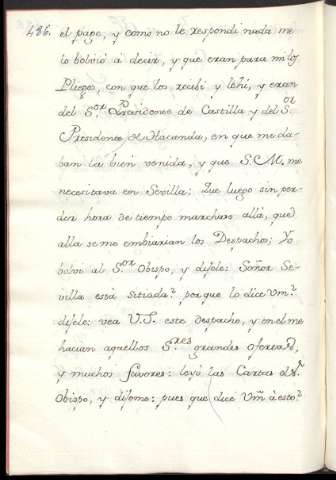 486. el page, y como no le respondi nada me
lo bolvió á decir, y que eran para mi los
Pliegos, con que los recibi y lehí, y eran
del S.or Dn de Castilla y del S.or
Presidente de Hacienda, en que me da-
ban la bien venida, y que S.M. me
necesitava en Sevilla: Que luego sin per-
der hora de tiempo marchase allá, que
alla se me embiarian los Despachos; Yo
bolvi al S.or Obispo, y dijole: Señor Se-
villa está sitiada? porque lo dice Vm.?
dijele: vea V.S. este despacho, y en el me
hacian aquellos S.res grandes ofertas,
y muchos favores: leyó las Cartas el S.r
Obispo, y dijome: pues que dice Vm á esto?